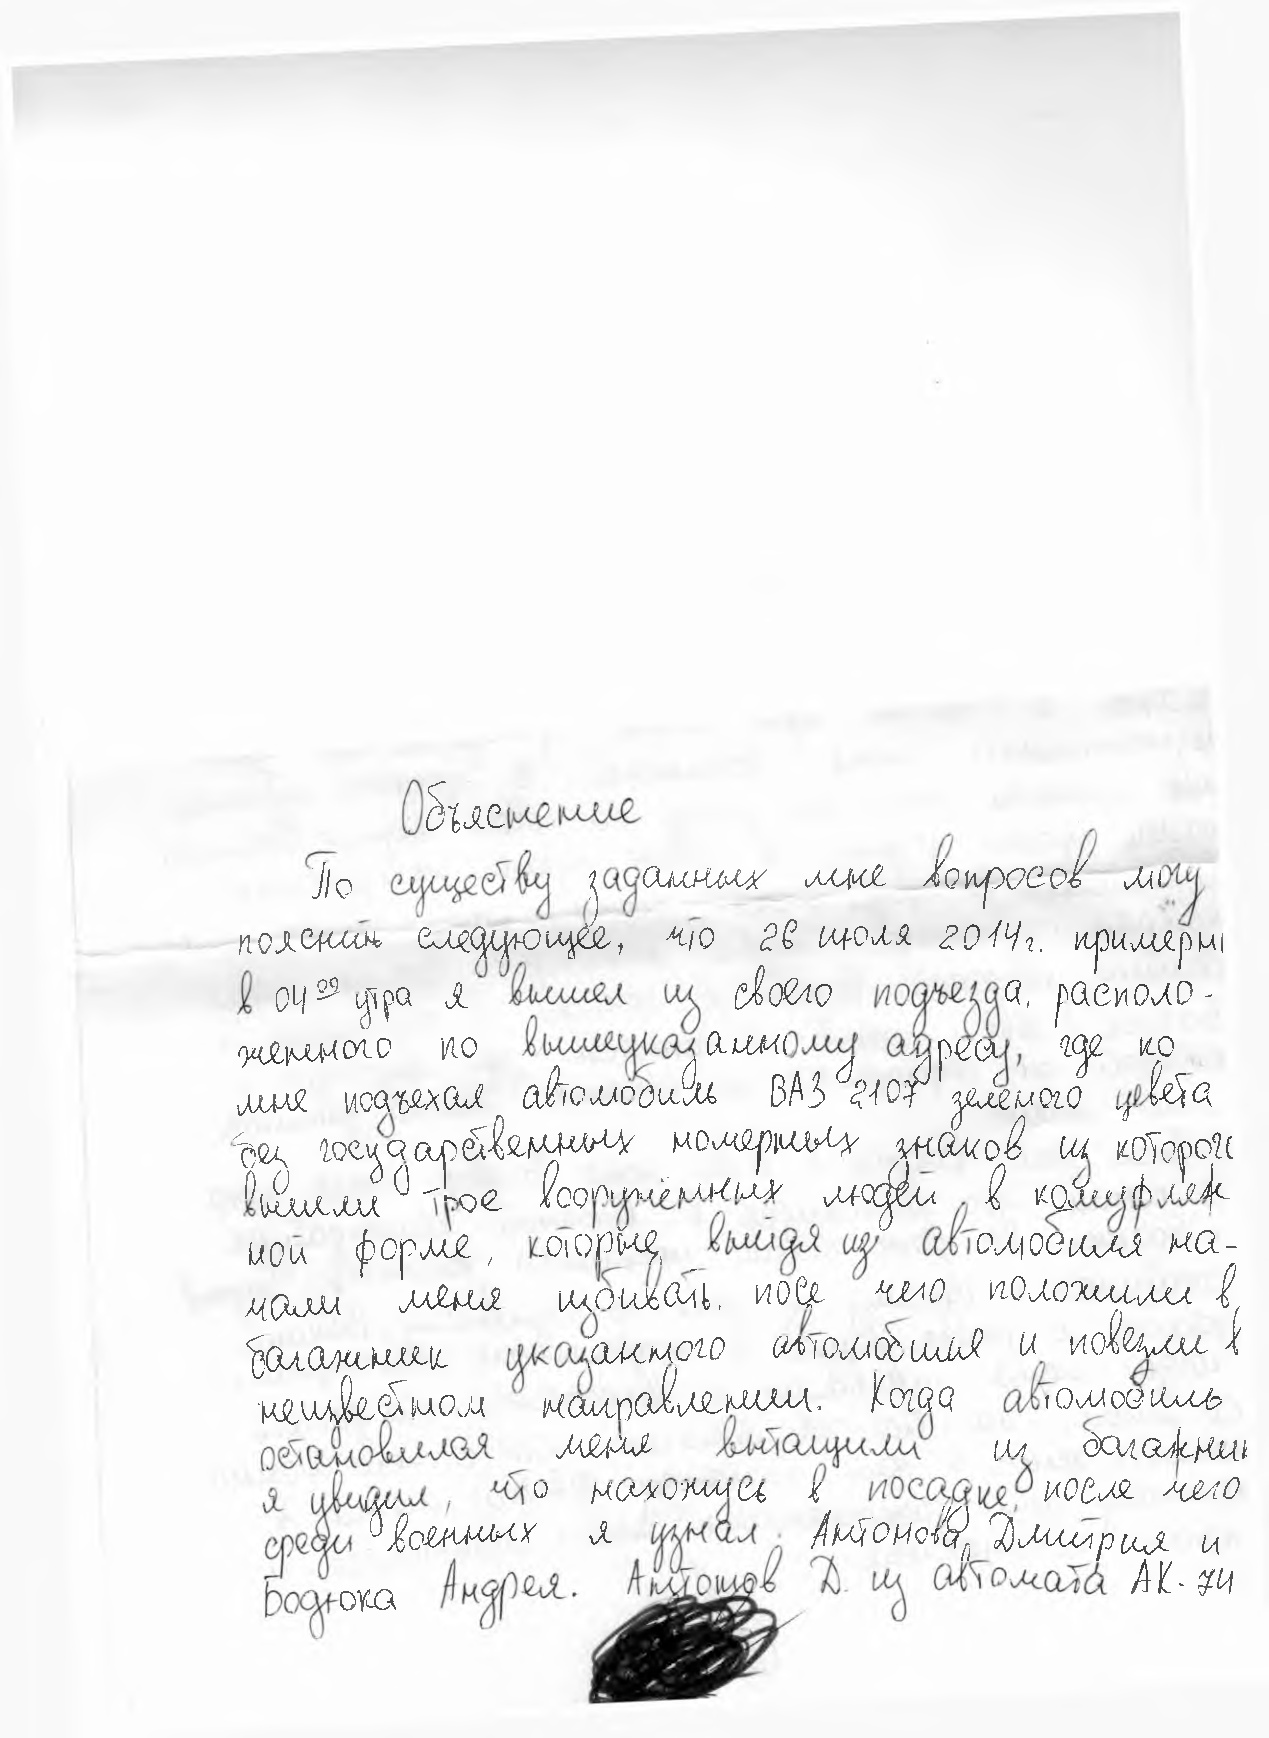 Объяснение
По существу заданных мне вопросов могу
пояснить следующее, что 26 июля 2014г. примерн
в 04 00 утра я вышел из своего подъезда, располо-
женного по вышеуказанному адресу, где ко
мне подъехал автомобиль ВАЗ 2107 зеленого цвета
без государственных номерных знаков из которог
вышли трое вооруженных людей в камуфляж
ной форме, которые, выйдя из автомобиля на-
чали меня избивать, посе чего положили в
багажник указанного автомобиля и повезли в
неизвестном направлении. Когда автомобиль
остановился меня вытащили из багажник
я увидил, что нахожусь в посадке, после чего
среди военных я узнал Антонова Дмитрия и
Бодюка Андрея. Антонов Д. из автомата АК-74